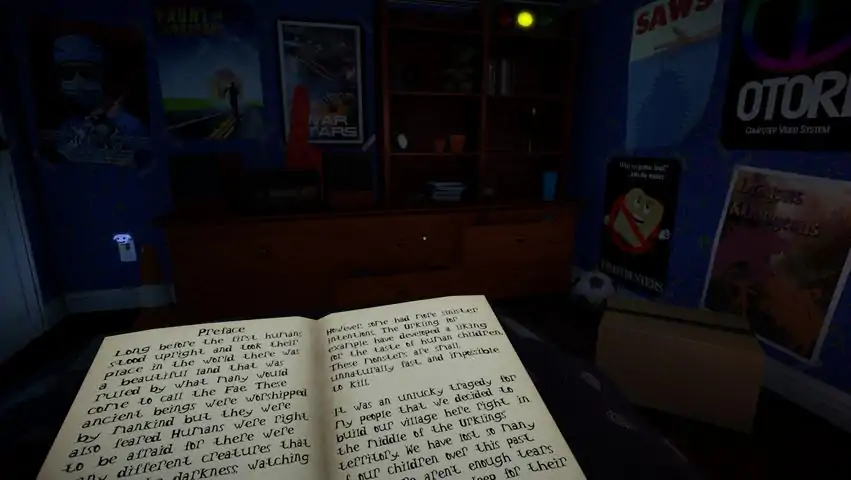 WAR
STARS
SAWS
OTORI
COMPUTER VIDEO SYSTEM
Preface
Long before the first humans
stood upright and took their
place in the world there was
a beautiful land that was
ruled by what many would
come to call the Fae These
ancient beings were worshipped
by mankind but they were
also feared Humans were right
to be afraid for there were
many different creatures that
darkness watching
However some had more sinister
intentions. The Urkling for
example have developed a liking
for the taste of human children.
These monsters are small,
unnaturally fast and impossible
to kill.
It was an unlucky tragedy for
my people that we decided to
build our village here right in
the middle of the Urklings
territory. We have lost so many
of our children over this past
aren't enough tears
for their